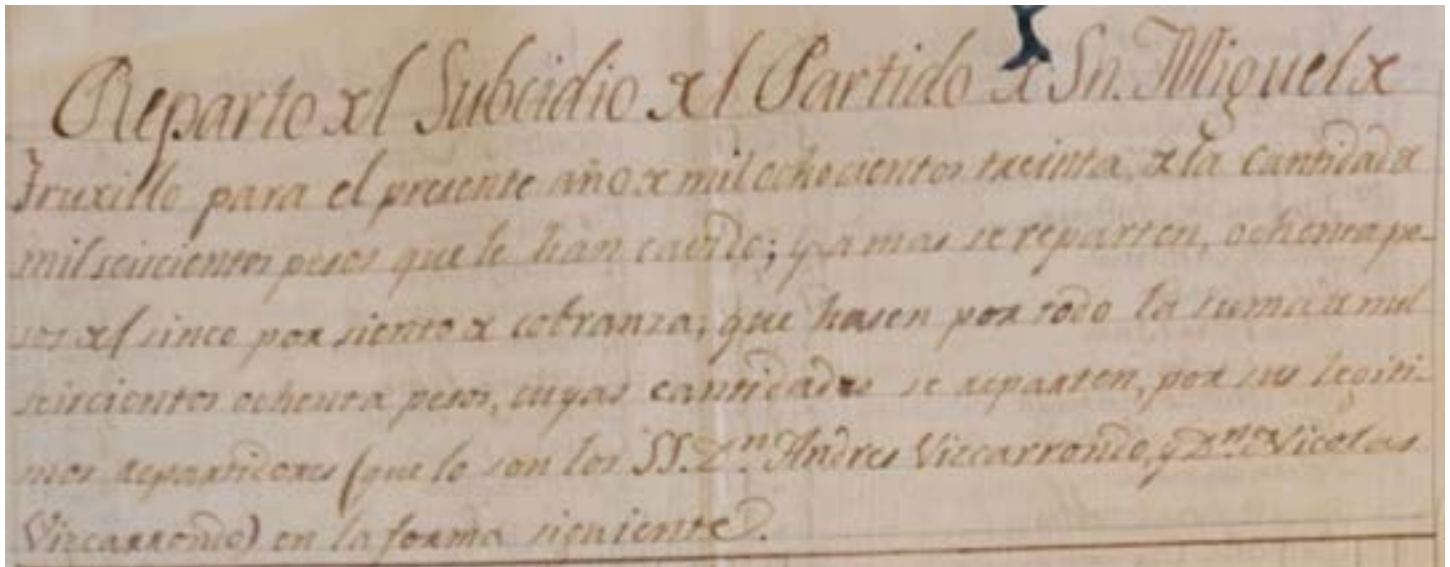 Reparto del Subcidio del Partido de Sn. Miguel de
Truxillo para el presente año de mil ochocientos treinta, de la cantidad de
mil seiscientos pesos que le han cavido; y a mas se reparten, ochenta pe-
sos del sinco por siento de cobranza; que hasen por todo la suma de mil
seiscientos ochenta pesos, cuyas cantidades se reparten, por sus legiti-
mos repartidores (que lo son los SS. Dn. Andres Vizcarrondo, y Dn. Nicolas
Vizcarrondo) en la forma siguiente.